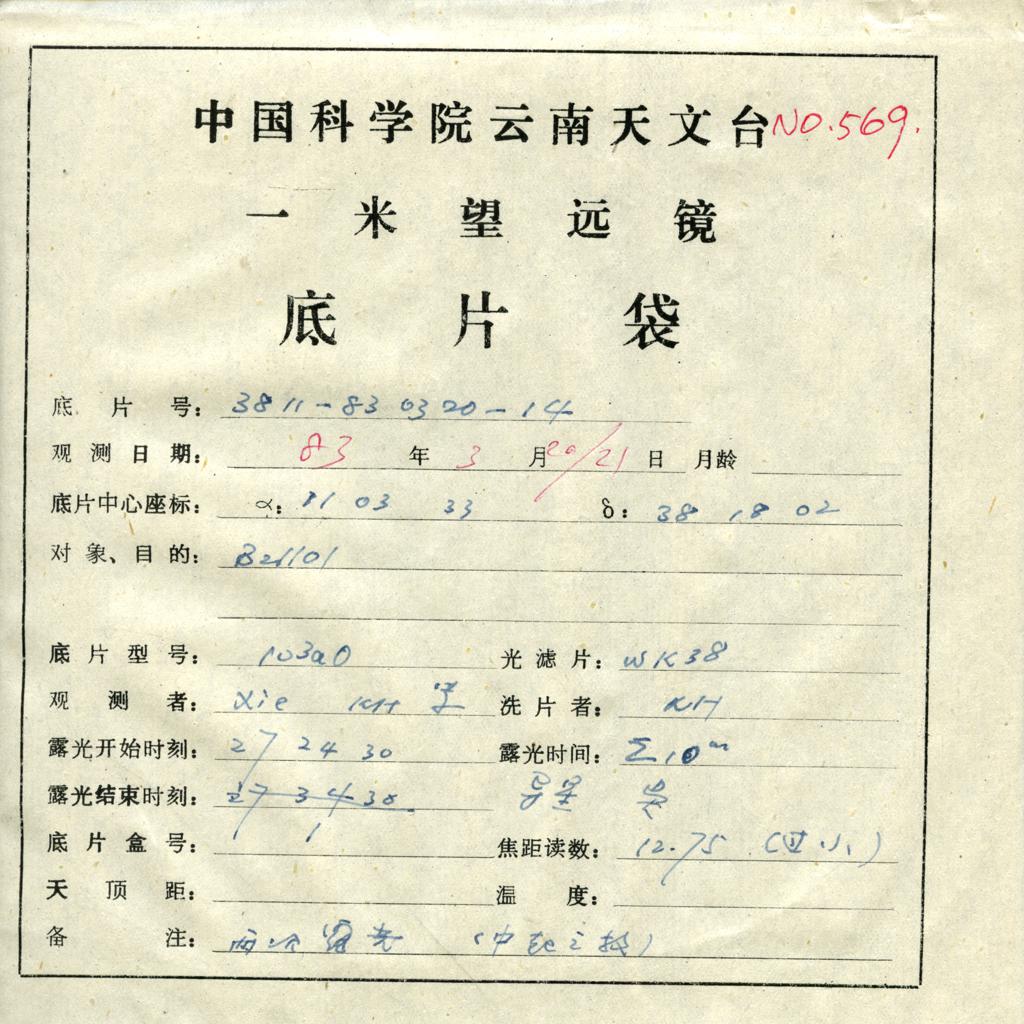 中国科学院云南天文台 NO.569.
一米望远镜
底片袋
底片号: 3811-830320-14
观测日期: 83年3月20/21日 月龄
底片中心座标: α: 11 03 33 δ: 38 18 02
对象、目的:
底片型号: 103aO 光滤片: WK38
观测者: Xie KH 洗片者: KH
露光开始时刻: 27 24 30 露光时间: Σ10m
露光结束时刻: 27 34 30 导星
底片盒号: 1 焦距读数: 12.75 (过小)
天顶距: 温度:
备注: 两次露光